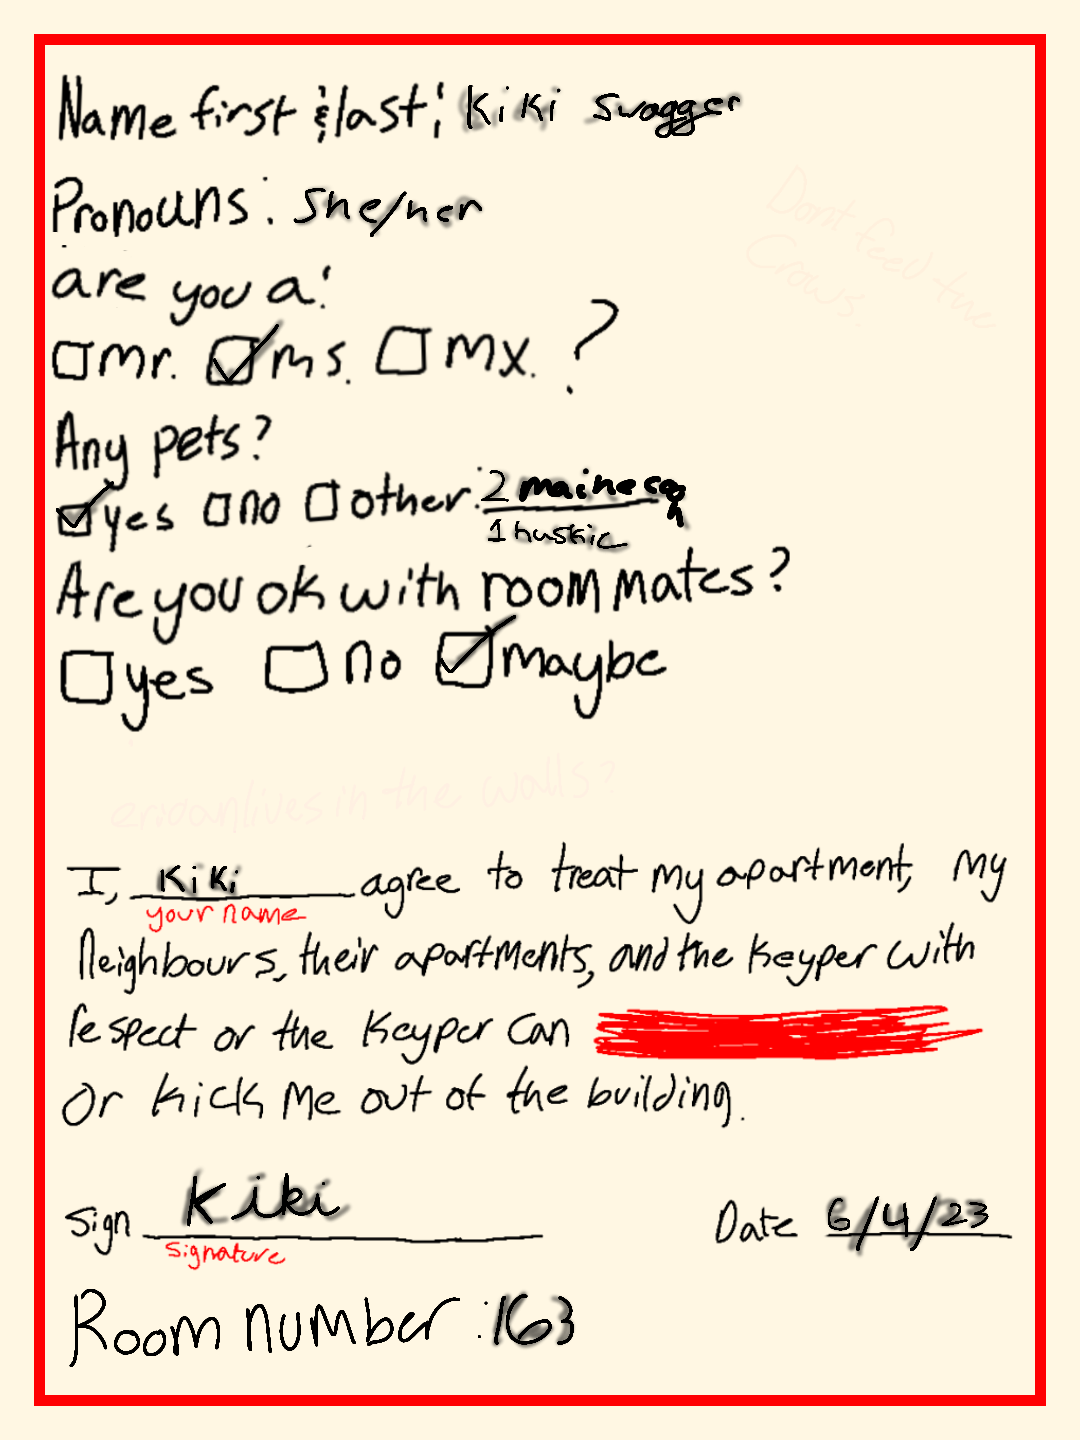 Name first & last: Kiki Swagger
Pronouns: She/her
Dont feed the
Crows.
are you a:
mr. ms. mx. ?
Any pets?
yes no other: 2 maine coon
1 huskie
Are you ok with roommates?
yes no maybe
lives in the walls?
I, Kiki agree to treat my apartment, my
your name
Neighbours, their apartments, and the Keyper with
respect or the Keyper can
Or kick me out of the building.
Sign Kiki Date 6/4/23
signature
Room number: 163